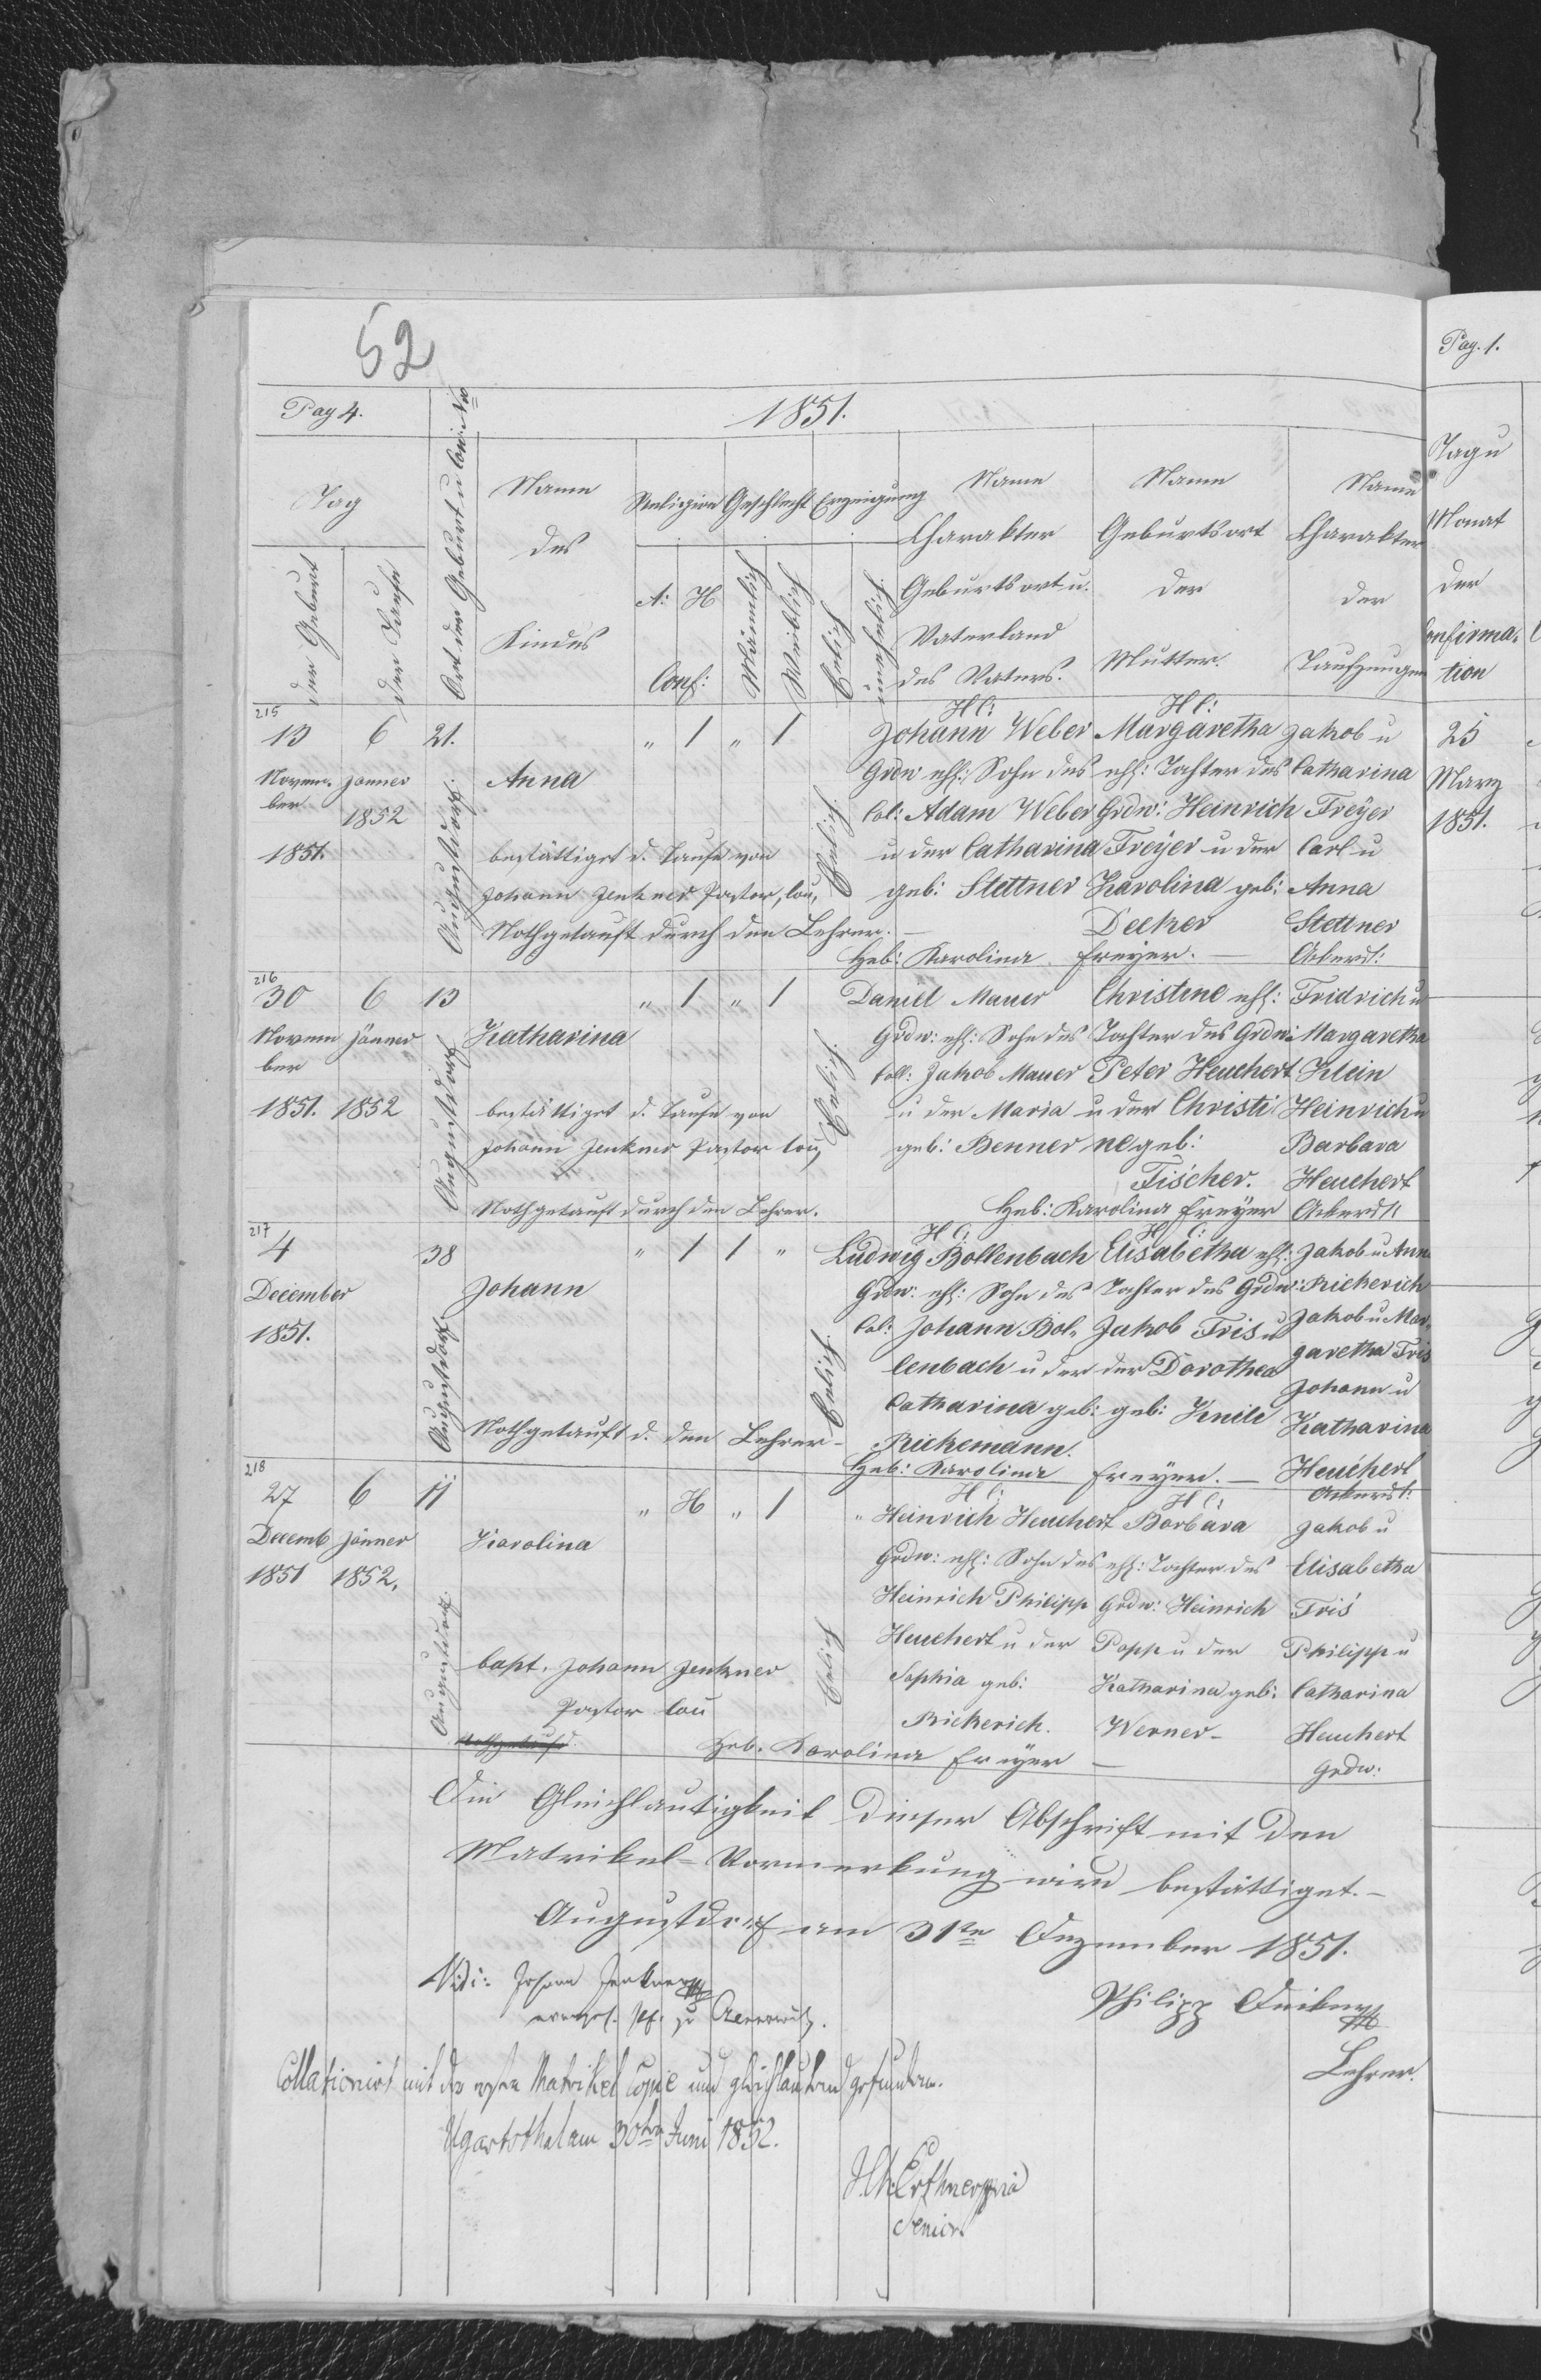 52
Pag 4.
1851.
Tag
der Geburt
der Taufe
Ort der Geburt u Con: Nro
Name
des
Kindes
Religion Geschlecht Erzeigung
A: H
Conf:
Männlich
Weiblich
Ehelich
unehelich
Name
Charakter
Geburtsort u.
Vaterland
des Vaters.
Name
Geburtsort
der
Mutter.
Name
Charakter
der
Taufzeugen
215
13 6 21.
Novem- Jänner
ber 1852
1851.
Augustdorf.
Anna
bestättiget d. Taufe von
Johann Jenkner Pastor, loci,
Nothgetauft durch den Lehrer.
" 1 " 1
Ehelich
H C:
Johann Weber
Grdw ehl: Sohn des
Col: Adam Weber
u der Catharina
geb: Stettner
H C:
Margaretha
ehl: Tochter des
Grdw: Heinrich
Freyer u der
Karolina geb:
Decker
Jakob u
Catharina
Freÿer
Carl u
Anna
Stettner
Ackersl:
Heb: Karolina Freyer.
216
30 6 13
Novem Jänner
ber
1851. 1852
Augustdorf
Katharina
bestättiget d. Taufe von
Johann Jenkner Pastor loci
Nothgetauft durch den Lehrer.
" 1 " 1
Ehelich.
Daniel Mauer
Grdw: ehl: Sohn des
Coll: Jakob Mauer
u der Maria
geb: Benner
Christine ehl:
Tochter des Grdw:
Peter Heuchert
u der Christi
ne geb:
Fischer.
Fridrich u
Margaretha
Klein
Heinrich u
Barbara
Heuchert
Ackersl:
Heb: Karolina Freyer
217
4 38
December
1851.
Augustdorf
Johann
Nothgetauft d. den Lehrer-
" 1 1 "
Ehelich
H C:
Ludwig Bollenbach
Grdw: ehl: Sohn des
Col: Johann Bol-
lenbach u der
Catharina geb:
Rickemann.
H C:
Elisabetha ehl:
Tochter des Grdw:
Jakob Fris u
der Dorothea
geb: Kneile
Jakob u Anna
Rickerich
Jakob u Mar-
garetha Fris
Johann u
Katharina
Heuchert
Ackersl:
Heb: Karolina Freyer.
218
27 6 11
Decemb Jänner
1851 1852.
Augustdorf
Karolina
bapt. Johann Jenkner
Pastor loci
" H " 1 "
Ehelich
H C:
Heinrich Heuchert
Grdw: ehl: Sohn des
Heinrich Philipp
Heuchert u der
Sophia geb:
Rickerich.
H C:
Barbara
ehl: Tochter des
Grdw: Heinrich
Popp u der
Katharina geb:
Werner-
Jakob u
Elisabetha
Fris
Philipp u
Catharina
Heuchert
Grdw:
Heb. Karolina Freyer
Die Gleichlautigkeit dieser Abschrift mit den
Matrikel-Vormerkung wird bestättiget.-
Augustdorf am 31te Dezember 1851.
Vidi: Johann Jenkner
evangel. Pf. zu
Philipp
Lehrer.
Collationirt mit der ersten Matrikel Copie und gleichlautend gefunden.
Ugartsthal am 30ten Juni 1852.
Senior
Pag. 1.
Tag u
Monat
der
Confirma-
tion
25
Marz
1851.